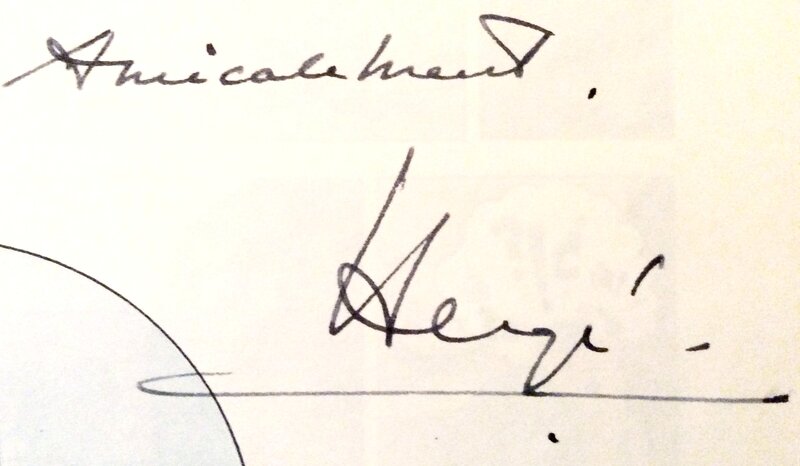 Amicalement.
Hergé -